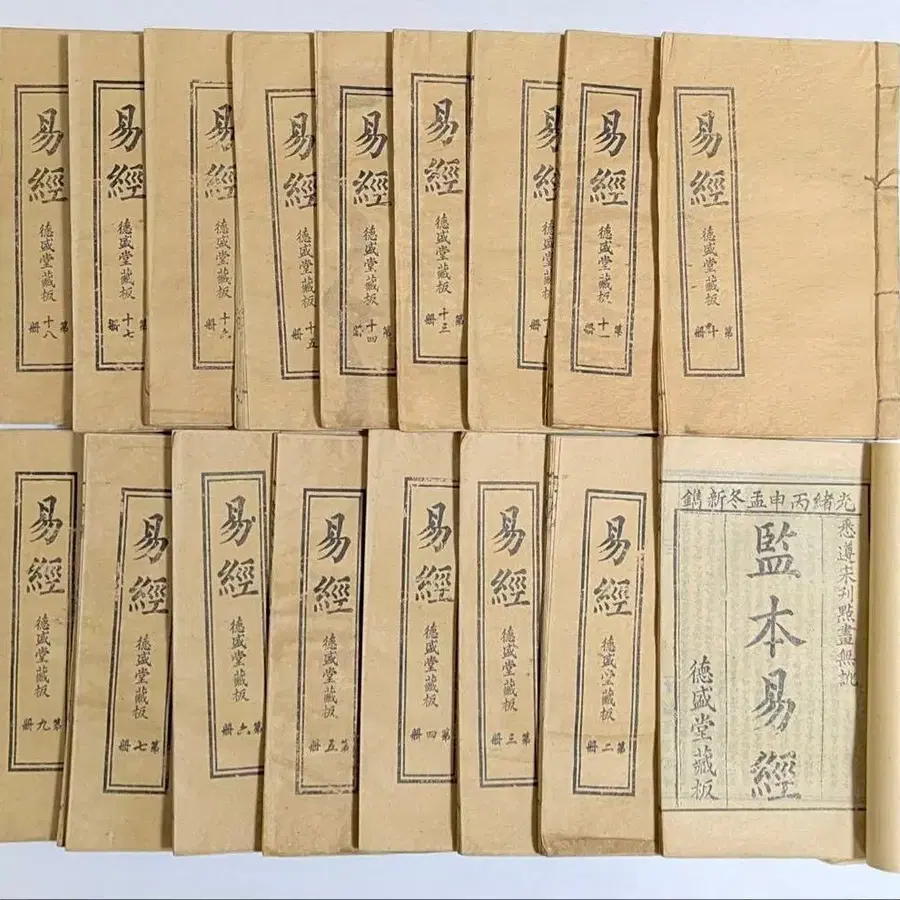 易經
德盛堂藏板
第十八册
易經
德盛堂藏板
第十七册
易經
德盛堂藏板
十六册
易經
德盛堂藏板
十五册
易經
德盛堂藏板
第十四
易經
德盛堂藏板
第十三册
易經
德盛堂藏板
册
易經
德盛堂藏板
第十一册
易經
德盛堂藏板
十册
易經
德盛堂藏板
第九册
易經
德盛堂藏板
第七册
易經
德盛堂藏板
第六册
易經
德盛堂藏板
第五册
易經
德盛堂藏板
第四册
易經
德盛堂藏板
第三册
易經
德盛堂藏板
第二册
光緒丙申孟冬新鐫
悉遵宋刊點畫無訛
監本易經
德盛堂藏板